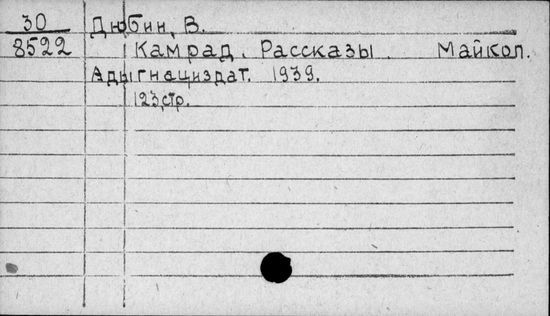 30 Дюбин, В.
8522 Камрад. Рассказы. Майкоп.
Адыгнациздат. 1939.
123стр.